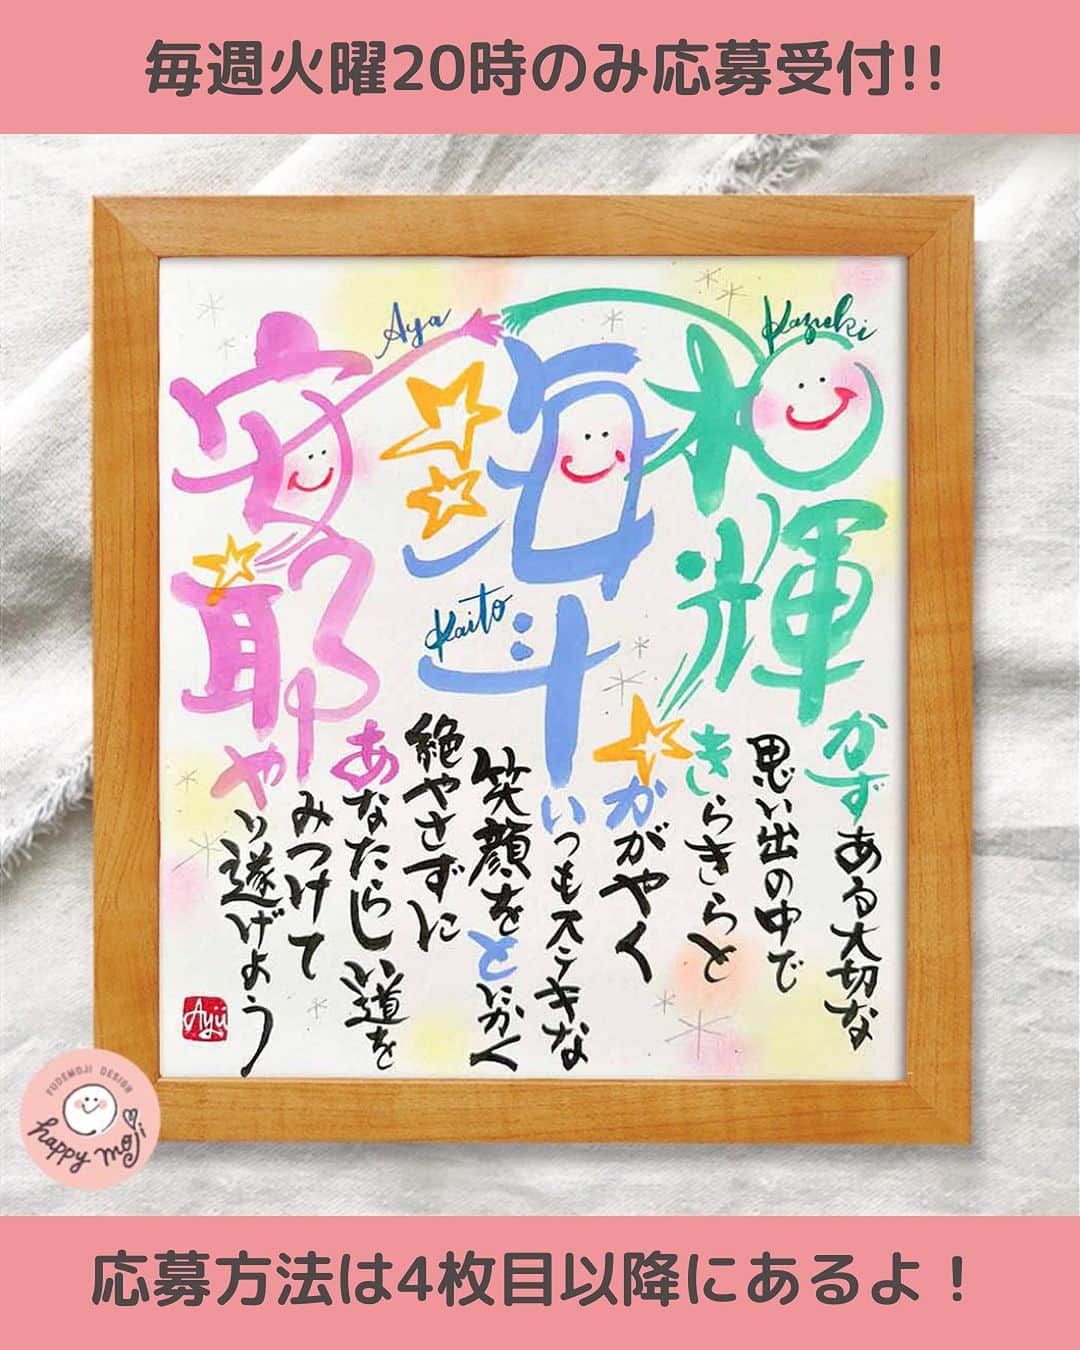 毎週火曜20時のみ応募受付!!
Kazuki
和輝
Aya
海斗
Kaito
安耶
かずある大切な
思い出の中で
きらきらと
かがやく
いつもステキな
笑顔をとにかく
絶やさずに
あなたらしい道を
みつけて
やり遂げよう
Ayü
FUDEMOJI DESIGN
happy moji
応募方法は4枚目以降にあるよ！